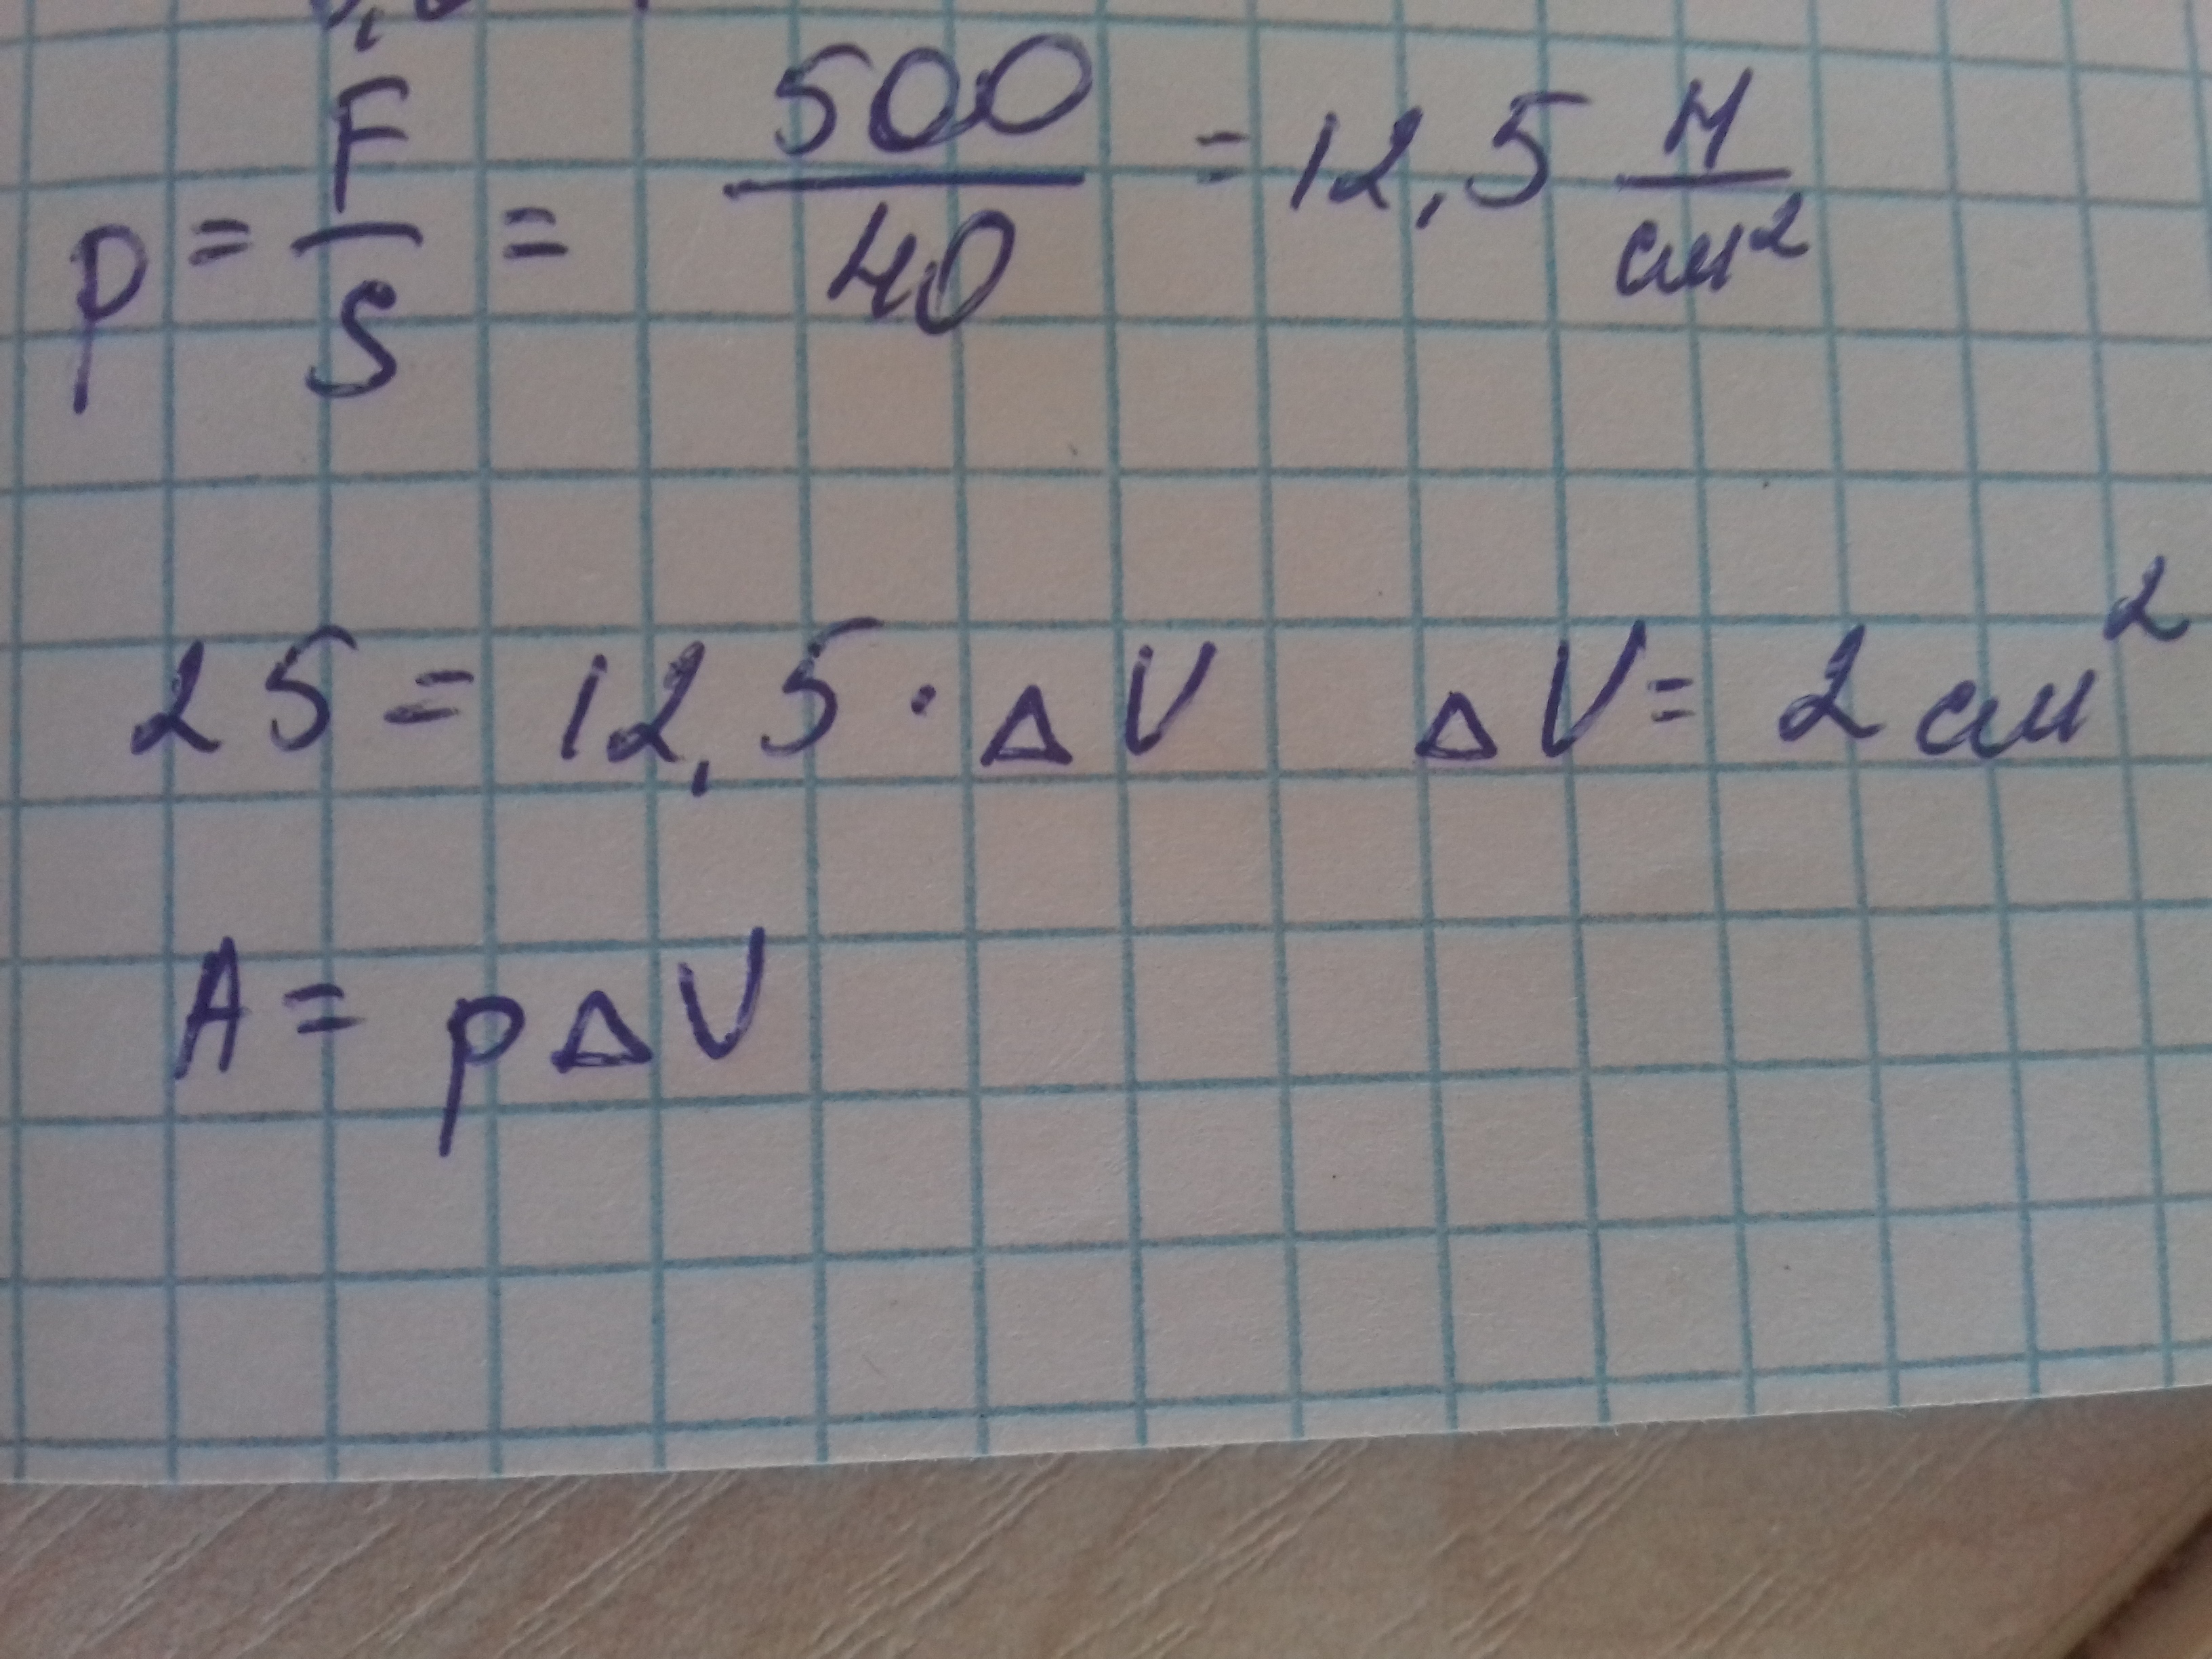 p = F/S = 500/40 = 12,5 Н/см²
25 = 12,5 · ΔV ΔV = 2 см²
A = pΔV